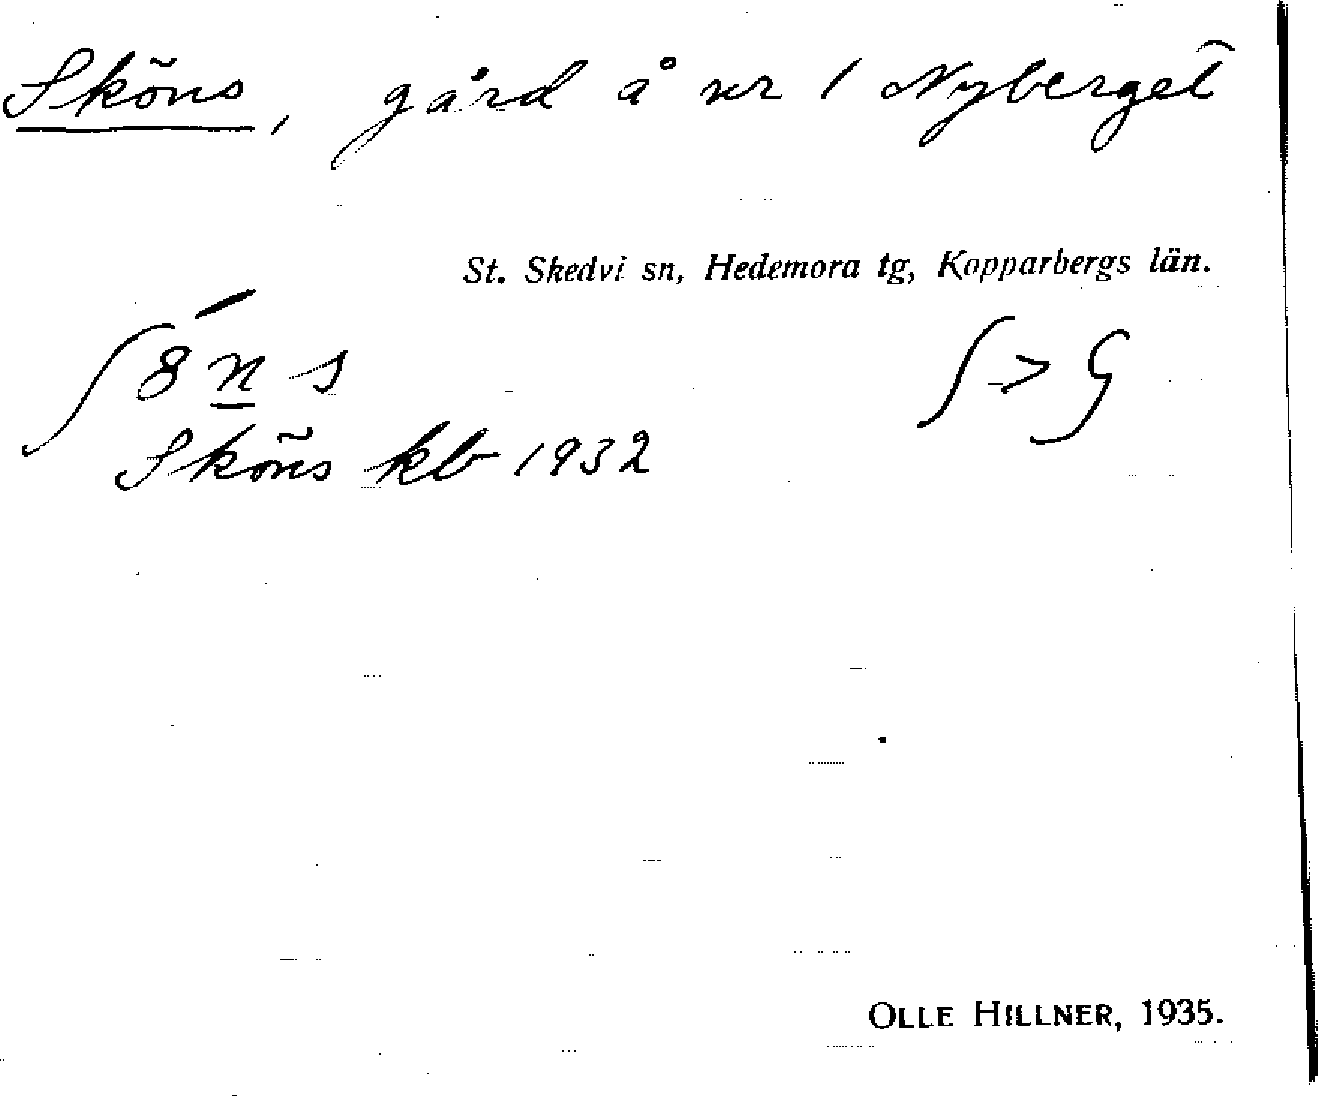 Sköns, gård å nr 1 Nyberget
St. Skedvi sn, Hedemora tg, Kopparbergs län.
ʃ8́n̲s ʃ > ʢ
Sköns kb 1932
OLLE HILLNER, 1935.